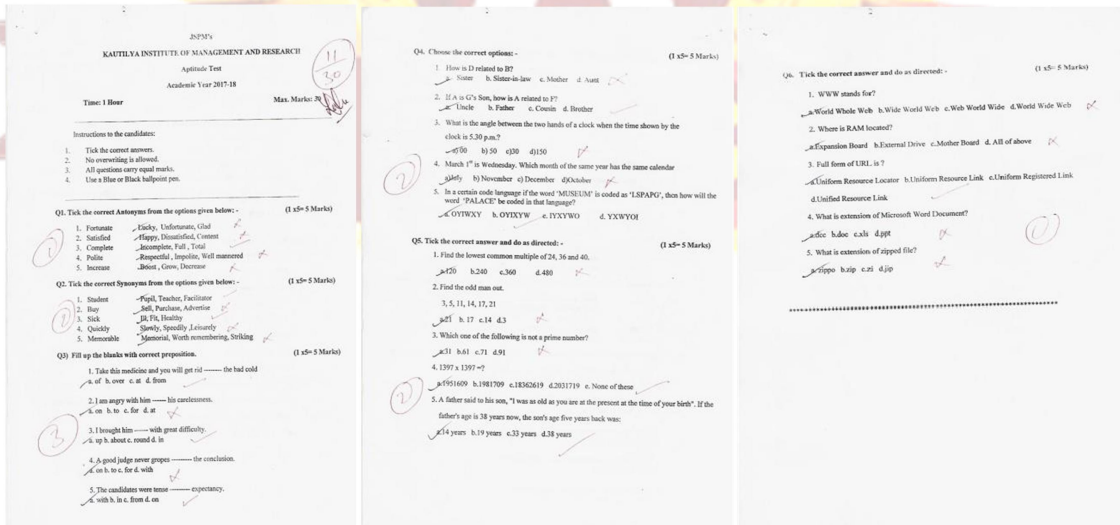 JSPM's
KAUTILYA INSTITUTE OF MANAGEMENT AND RESEARCH
Aptitude Test
Academic Year 2017-18
Time: 1 Hour
Max. Marks: 30
11
30
Instructions to the candidates:
1. Tick the correct answers.
2. No overwriting is allowed.
3. All questions carry equal marks.
4. Use a Blue or Black ballpoint pen.
Q1. Tick the correct Antonyms from the options given below: - (1 x5= 5 Marks)
1. Fortunate Lucky, Unfortunate, Glad
2. Satisfied Happy, Dissatisfied, Content
3. Complete Incomplete, Full, Total
4. Polite Respectful, Impolite, Well mannered
5. Increase Boost, Grow, Decrease
1
Q2. Tick the correct Synonyms from the options given below: - (1 x5= 5 Marks)
1. Student Pupil, Teacher, Facilitator
2. Buy Sell, Purchase, Advertise
3. Sick Ill, Fit, Healthy
4. Quickly Slowly, Speedily, Leisurely
5. Memorable Memorial, Worth remembering, Striking
Q3) Fill up the blanks with correct preposition. (1 x5= 5 Marks)
1. Take this medicine and you will get rid ------- the bad cold
a. of b. over c. at d. from
2. I am angry with him ------ his carelessness.
a. on b. to c. for d. at
3. I brought him ------ with great difficulty.
a. up b. about c. round d. in
3
4. A good judge never gropes --------- the conclusion.
a. on b. to c. for d. with
5. The candidates were tense --------- expectancy.
a. with b. in c. from d. on
Q4. Choose the correct options: - (1 x5= 5 Marks)
1. How is D related to B?
a. Sister b. Sister-in-law c. Mother d. Aunt
2. If A is G's Son, how is A related to F?
a. Uncle b. Father c. Cousin d. Brother
3. What is the angle between the two hands of a clock when the time shown by the
clock is 5.30 p.m.?
b) 50 c)30 d)150
4. March 1st is Wednesday. Which month of the same year has the same calendar
b) November c) December d)October
2
5. In a certain code language if the word 'MUSEUM' is coded as 'LSPAPG', then how will the
word 'PALACE' be coded in that language?
a. OYIWXY b. OYIXYW c. IYXYWO d. YXWYOI
Q5. Tick the correct answer and do as directed: - (1 x5= 5 Marks)
1. Find the lowest common multiple of 24, 36 and 40.
a.120 b.240 c.360 d.480
2. Find the odd man out.
3, 5, 11, 14, 17, 21
a.21 b. 17 c.14 d.3
3. Which one of the following is not a prime number?
a.31 b.61 c.71 d.91
4. 1397 x 1397 =?
a.1951609 b.1981709 c.18362619 d.2031719 e. None of these
2
5. A father said to his son, "I was as old as you are at the present at the time of your birth". If the
father's age is 38 years now, the son's age five years back was:
a.14 years b.19 years c.33 years d.38 years
Q6. Tick the correct answer and do as directed: - (1 x5= 5 Marks)
1. WWW stands for?
a.World Whole Web b.Wide World Web c.Web World Wide d.World Wide Web
2. Where is RAM located?
a.Expansion Board b.External Drive c.Mother Board d. All of above
3. Full form of URL is ?
a.Uniform Resource Locator b.Uniform Resource Link c.Uniform Registered Link
d.Unified Resource Link
4. What is extension of Microsoft Word Document?
a.doc b.doc c.xls d.ppt
1
5. What is extension of zipped file?
a.zippo b.zip c.zi d.jip